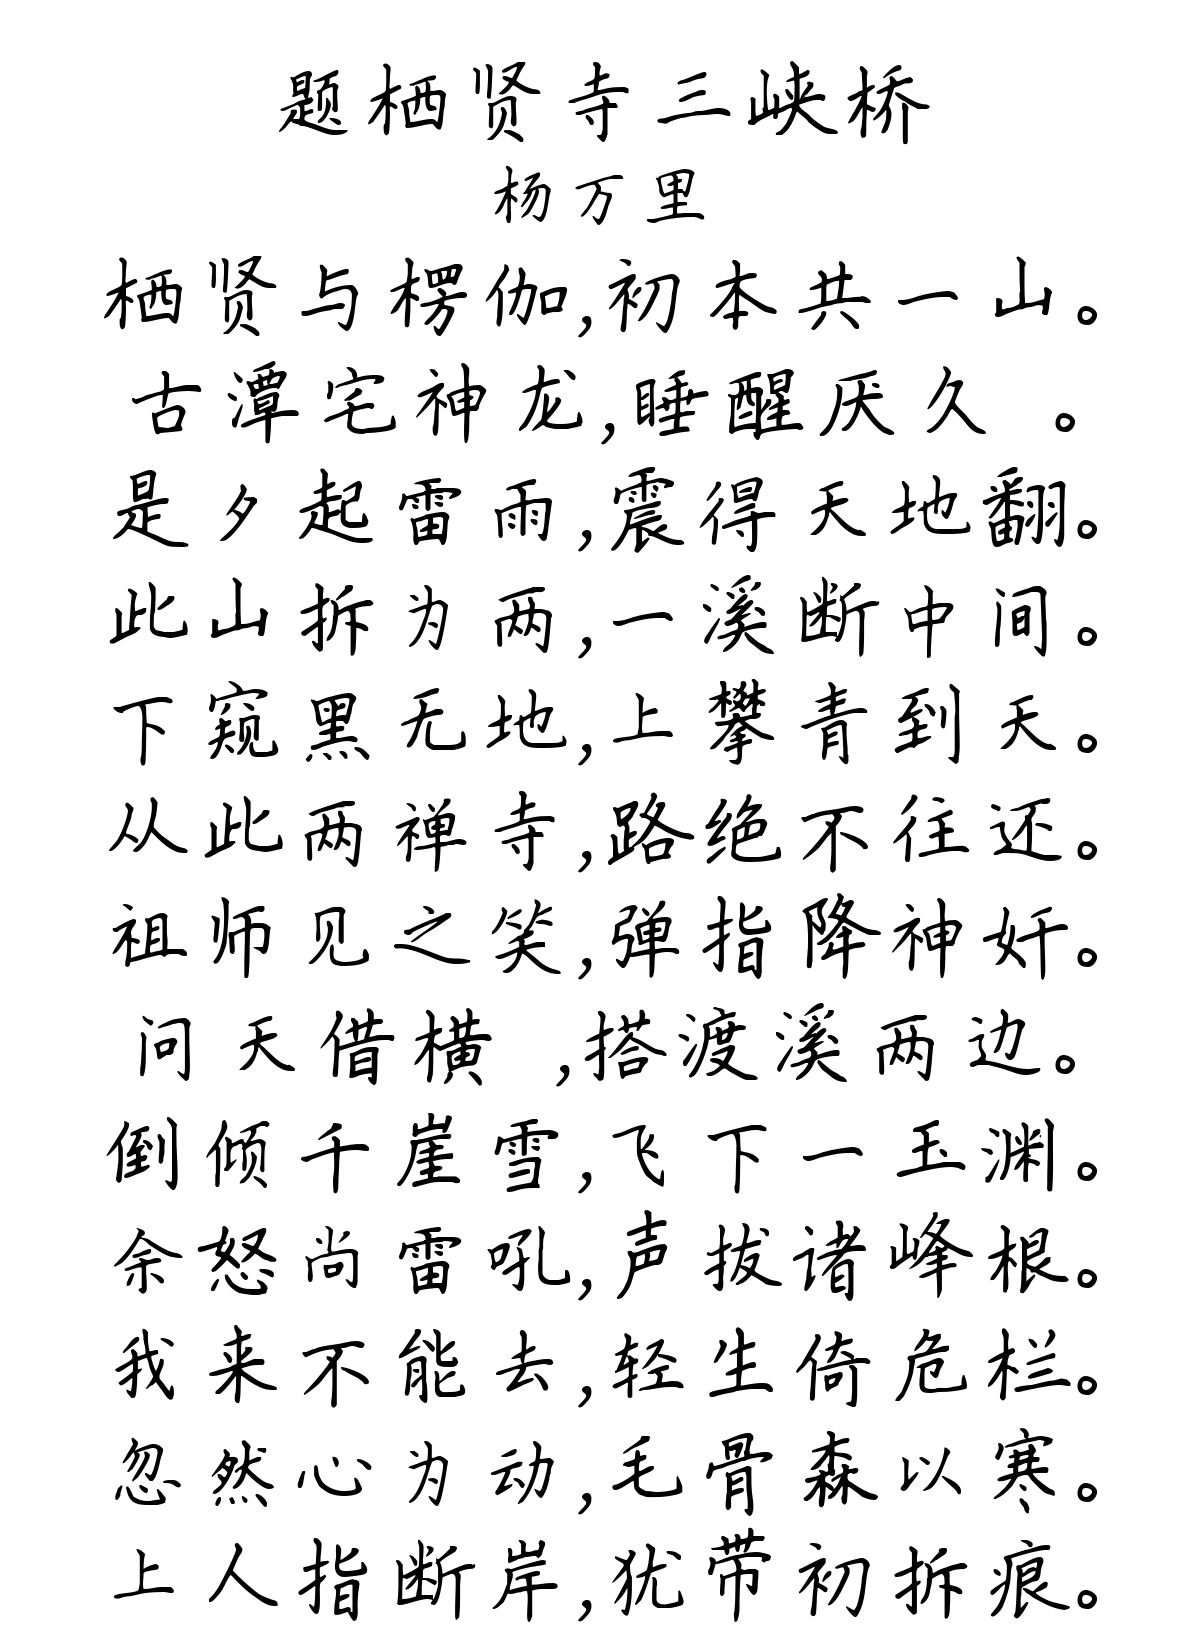 题栖贤寺三峡桥
杨万里
栖贤与楞伽,初本共一山。
古潭宅神龙,睡醒厌久 。
是夕起雷雨,震得天地翻。
此山拆为两,一溪断中间。
下窥黑无地,上攀青到天。
从此两禅寺,路绝不往还。
祖师见之笑,弹指降神奸。
问天借横 ,搭渡溪两边。
倒倾千崖雪,飞下一玉渊。
余怒尚雷吼,声拔诸峰根。
我来不能去,轻生倚危栏。
忽然心为动,毛骨森以寒。
上人指断岸,犹带初拆痕。